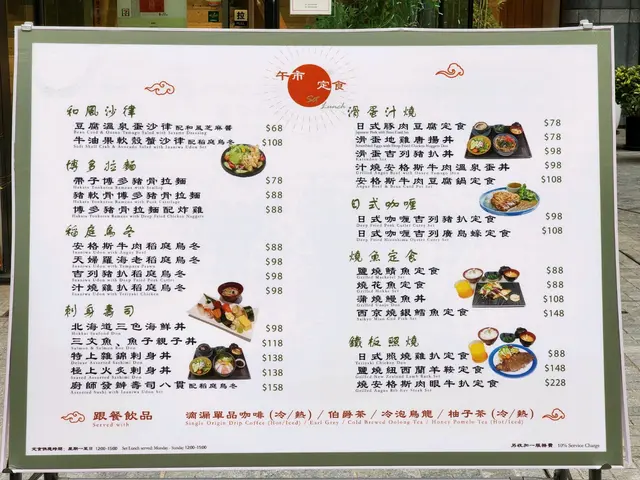 午市 定食
Set Lunch
和風沙律
豆腐溫泉蛋沙律 配和風芝麻醬 $68
Bean Curd & Onsen Tamago Salad with Sesame Dressing
牛油果軟殼蟹沙律 配稻庭烏冬 $108
Soft Shell Crab & Avocado Salad with Inaniwa Udon Set
博多拉麵
帶子博多豬骨拉麵 $78
Hakata Tonkotsu Ramen with Scallop
豬軟骨博多豬骨拉麵 $88
Hakata Tonkotsu Ramen with Pork Cartilage
博多豬骨拉麵配炸雞 $88
Hakata Tonkotsu Ramen with Deep Fried Chicken Nuggets
稻庭烏冬
安格斯牛肉稻庭烏冬 $88
Inaniwa Udon with Angus Beef
天婦羅海老稻庭烏冬 $98
Inaniwa Udon with Tempura Prawn
吉列豬扒稻庭烏冬 $98
Inaniwa Udon with Deep Fried Pork Cutlet
汁燒雞扒稻庭烏冬 $98
Inaniwa Udon with Teriyaki Chicken
刺身壽司
北海道三色海鮮丼 $98
Hokkai Seafood Don
三文魚、魚子親子丼 $118
Salmon & Salmon Roe Don
特上雜錦刺身丼 $138
Assorted Sashimi Don
極上火炙刺身丼 $138
Seared Assorted Sashimi Don
廚師發辦壽司八貫 配稻庭烏冬 $158
Assorted Sushi with Inaniwa Udon Set
滑蛋汁燒
日式豚肉豆腐定食 $78
滑蛋地雞唐揚丼 $78
滑蛋吉列豬扒丼 $98
汁燒安格斯牛肉溫泉蛋丼 $98
安格斯牛肉豆腐鍋定食 $108
Angus Beef & Bean Curd Pot Set
日式咖喱
日式咖喱吉列豬扒定食 $98
Deep Fried Pork Cutlet Curry Set
日式咖喱吉列廣島蠔定食 $108
Deep Fried Hiroshima Oyster Curry Set
燒魚定食
鹽燒鯖魚定食 $88
Grilled Mackerel Set
燒花魚定食 $88
Grilled Hokke Set
蒲燒鰻魚丼 $108
Grilled Unagi Don
西京燒銀鱈魚定食 $148
Saikyo Miso Cod Fish Set
鐵板照燒
日式照燒雞扒定食 $88
Teriyaki Chicken Set
鹽燒紐西蘭羊鞍定食 $148
Grilled New Zealand Lamb Rack Set
燒安格斯肉眼牛扒定食 $228
Grilled Angus Rib Eye Steak Set
跟餐飲品
Served with
滴漏單品咖啡 (冷/熱) / 伯爵茶 / 冷泡烏龍 / 柚子茶 (冷/熱)
Single Origin Drip Coffee (Hot/Iced) / Earl Grey / Cold Brewed Oolong Tea / Honey Pomelo Tea (Hot/Iced)
定食供應時間 星期一至日 12:00-15:00 Set Lunch served: Monday - Sunday 12:00-15:00
另收加一服務費 10% Service Charge